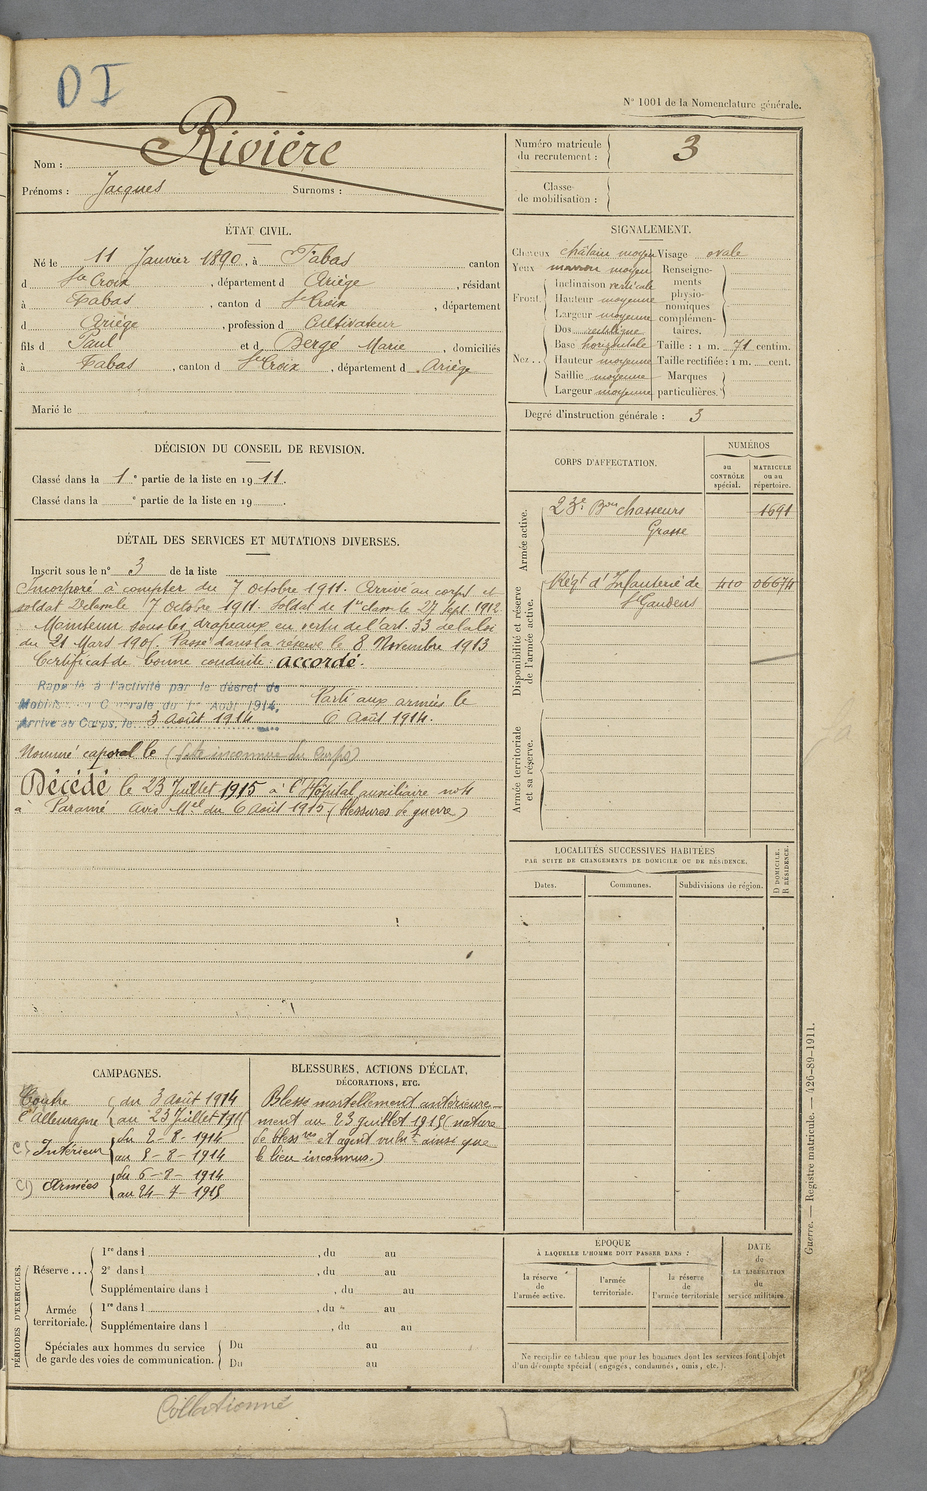 DI
N° 1001 de la Nomenclature générale.
Nom : Rivière
Prénoms : Jacques Surnoms :
Numéro matricule du recrutement : 3
Classe de mobilisation :
ÉTAT CIVIL.
Né le 11 Janvier 1890, à Fabas canton
d Ste Croix, département d Ariège, résidant
à Fabas, canton d Ste Croix, département
d Ariège, profession d Cultivateur
fils d Paul et d Bergé Marie, domiciliés
à Fabas, canton d Ste Croix, département d Ariège
Marié le
SIGNALEMENT.
Cheveux châtain moyen Visage ovale
Yeux marron moyen
Front Inclinaison verticale
Hauteur moyenne
Largeur moyenne
Nez Dos rectiligne
Base horizontale
Hauteur moyenne
Saillie moyenne
Largeur moyenne
Renseignements physionomiques complémentaires.
Taille : 1 m. 71 centim.
Taille rectifiée : 1 m. cent.
Marques particulières.
Degré d'instruction générale : 3
DÉCISION DU CONSEIL DE REVISION.
Classé dans la 1e partie de la liste en 1911.
Classé dans la e partie de la liste en 19
DÉTAIL DES SERVICES ET MUTATIONS DIVERSES.
Inscrit sous le n° 3 de la liste
Incorporé à compter du 7 octobre 1911. Arrivé au corps et
soldat 2e classe le 7 octobre 1911. Soldat de 1re classe le 27 Sept. 1912
Maintenu sous les drapeaux en vertu de l'art. 33 de la loi
du 21 Mars 1905. Passé dans la réserve le 8 Novembre 1913
Certificat de bonne conduite : accordé.
Rappelé à l'activité par le décret de
Mobilisation Générale du 1er Août 1914,
Arrivé au Corps, le 3 août 1914
Parti aux armées le
6 Août 1914.
Nommé caporal le (date inconnue du Corps)
Décédé le 23 Juillet 1915 à l'Hôpital auxiliaire
à Paramé Avis Mel du 6 Août 1915 (Blessures de guerre)
CORPS D'AFFECTATION.
NUMÉROS
au CONTRÔLE spécial.
MATRICULE ou au répertoire.
Armée active.
23e Bon chasseurs 1691
Grasse
Disponibilité et réserve de l'armée active.
Régt d'Infanterie de 410 06674
St Gaudens
Armée territoriale et sa réserve.
LOCALITÉS SUCCESSIVES HABITÉES
PAR SUITE DE CHANGEMENTS DE DOMICILE OU DE RÉSIDENCE.
Dates. Communes. Subdivisions de région.
D DOMICILE.
R RÉSIDENCE.
CAMPAGNES.
Contre l'Allemagne du 3 août 1914
au 23 Juillet 1915
C) Intérieur du 2-8-1914
au 8-8-1914
C) Armées du 6-8-1914
au 24-7-1915
BLESSURES, ACTIONS D'ÉCLAT,
DÉCORATIONS, ETC.
Blessé mortellement antérieure-
ment au 23 juillet 1915 (nature
de blessres et agent vulnt ainsi que
le lieu inconnus.)
PÉRIODES D'EXERCICES.
Réserve ...
1re dans l , du au
2e dans l , du au
Supplémentaire dans l , du au
Armée territoriale.
1re dans l , du au
Supplémentaire dans l , du au
Spéciales aux hommes du service de garde des voies de communication.
Du au
Du au
EPOQUE
À LAQUELLE L'HOMME DOIT PASSER DANS :
la réserve de l'armée active.
l'armée territoriale.
la réserve de l'armée territoriale
DATE de LA LIBÉRATION du service militaire.
Ne remplir ce tableau que pour les hommes dont les services font l'objet
d'un décompte spécial (engagés, condamnés, omis, etc.).
Guerre. — Registre matricule. — 426-89-1911.
Collationné